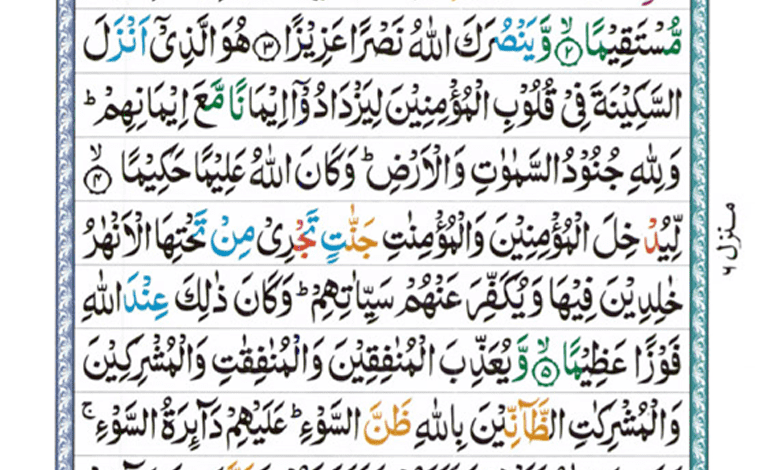 مُّسْتَقِيْمًا ۙ﴿۲﴾ وَّيَنْصُرَكَ اللّٰهُ نَصْرًا عَزِيْزًا ﴿۳﴾ هُوَ الَّذِيْۤ اَنْزَلَ
السَّكِيْنَةَ فِيْ قُلُوْبِ الْمُؤْمِنِيْنَ لِيَزْدَادُوْۤا اِيْمَانًا مَّعَ اِيْمَانِهِمْ ؕ
وَلِلّٰهِ جُنُوْدُ السَّمٰوٰتِ وَالْاَرْضِ ؕ وَكَانَ اللّٰهُ عَلِيْمًا حَكِيْمًا ۙ﴿۴﴾
لِّيُدْخِلَ الْمُؤْمِنِيْنَ وَالْمُؤْمِنٰتِ جَنّٰتٍ تَجْرِيْ مِنْ تَحْتِهَا الْاَنْهٰرُ
خٰلِدِيْنَ فِيْهَا وَيُكَفِّرَ عَنْهُمْ سَيِّاٰتِهِمْ ؕ وَكَانَ ذٰلِكَ عِنْدَ اللّٰهِ
فَوْزًا عَظِيْمًا ۙ﴿۵﴾ وَّيُعَذِّبَ الْمُنٰفِقِيْنَ وَالْمُنٰفِقٰتِ وَالْمُشْرِكِيْنَ
وَالْمُشْرِكٰتِ الظَّآنِّيْنَ بِاللّٰهِ ظَنَّ السَّوْءِ ؕ عَلَيْهِمْ دَآئِرَةُ السَّوْءِ ۚ
منزل ۶